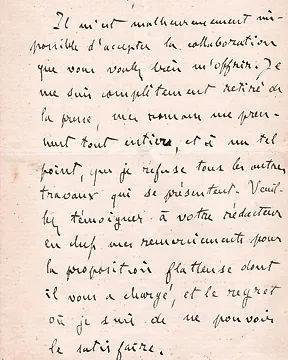 Il m'est malheureusement im-
possible d'accepter la collaboration
que vous voulez bien m'offrir. Je
me suis complètement retiré de
la presse, mes romans me pren-
nent tout entier, et à un tel
point, que je refuse tous les autres
travaux qui se présentent. Veuil-
lez témoigner à votre rédacteur
en chef mes remerciements pour
la proposition flatteuse dont
il vous a chargé, et le regret
où je suis de ne pouvoir
le satisfaire.